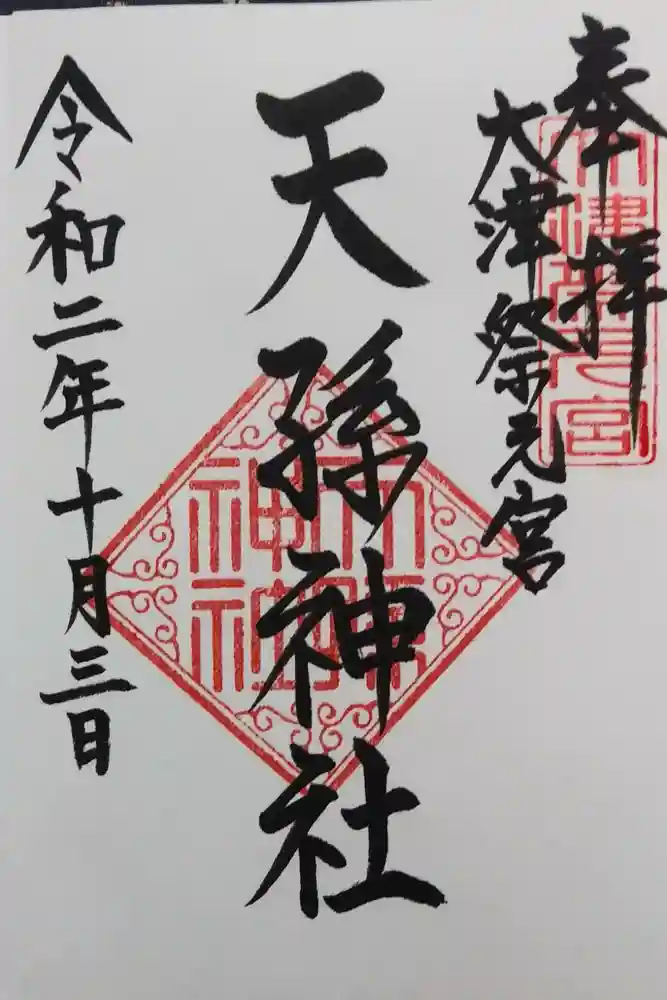 奉拝
大津祭元宮
大津祭元宮
天孫神社
天孫神社
令和二年十月三日